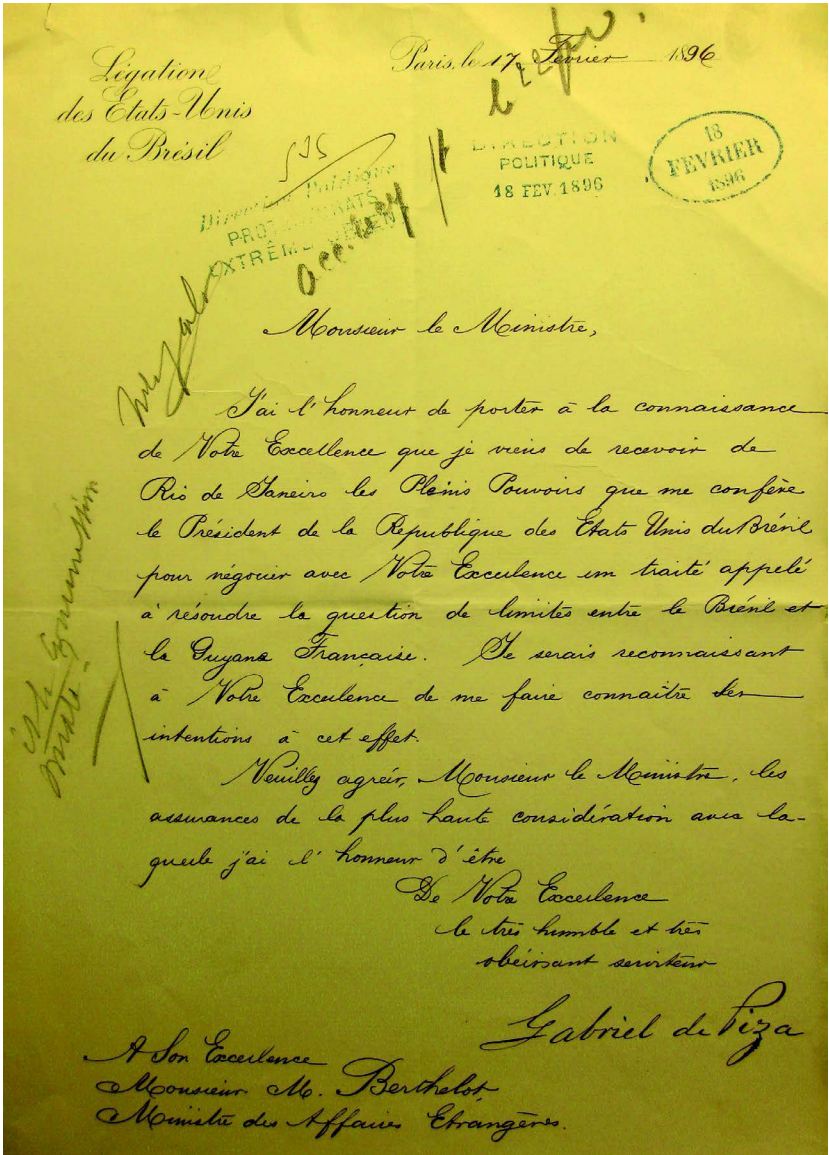 Légation
des Etats-Unis
du Brésil
Paris, le 17 Février 1896
DIRECTION
POLITIQUE
18 FEV. 1896
18
FEVRIER
1896
Direction Politique
PROTECTORATS
EXTRÊME
acc.
Monsieur le Ministre,
J'ai l'honneur de porter à la connaissance
de Votre Excellence que je viens de recevoir de
Rio de Janeiro les Pleins Pouvoirs que me confère
le Président de la République des Etats Unis du Brésil
pour négocier avec Votre Excellence un traité appelé
à résoudre la question de limites entre le Brésil et
la Guyane Française. Je serais reconnaissant
à Votre Excellence de me faire connaître ses
intentions à cet effet.
Veuillez agréer, Monsieur le Ministre, les
assurances de la plus haute considération avec la-
quelle j'ai l'honneur d'être
De Votre Excellence
le très humble et très
obéissant serviteur
Gabriel de Piza
A Son Excellence
Monsieur M. Berthelot,
Ministre des Affaires Etrangères.